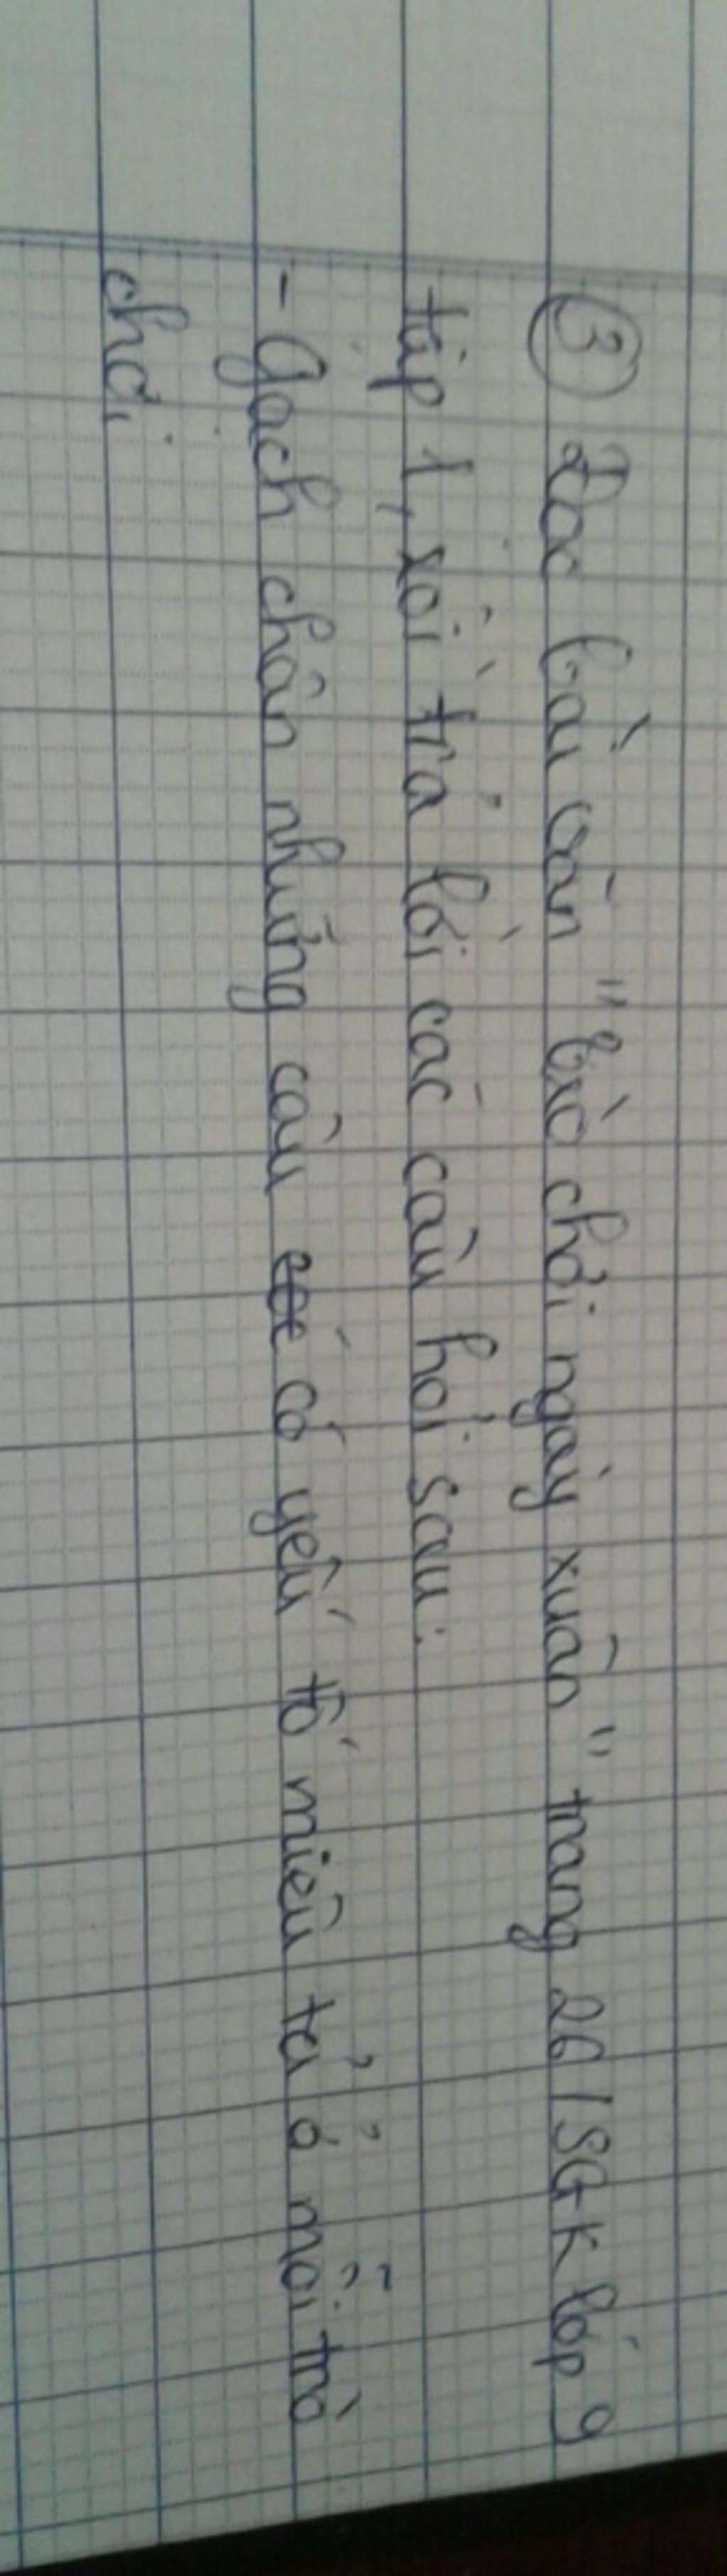 ③ Đọc bài văn "trò chơi ngày xuân" trang 26 / SGK lớp 9
tập 1, rồi trả lời các câu hỏi sau:
- Gạch chân những câu có yếu tố miêu tả ở mỗi trò
chơi